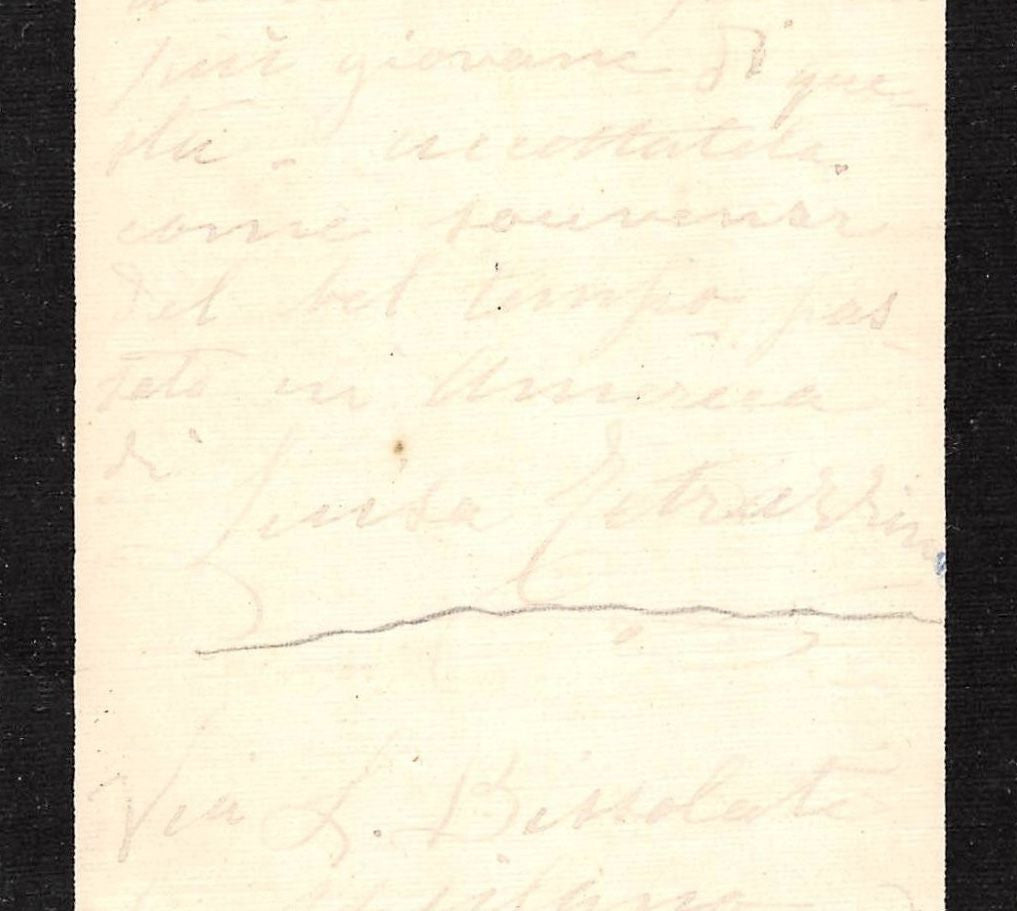 più giovane di que-
sta. accettatela
come souvenir
del bel tempo pas-
sato in America
di
Luisa Tetrazzini
Via L. Bissolati
Milano